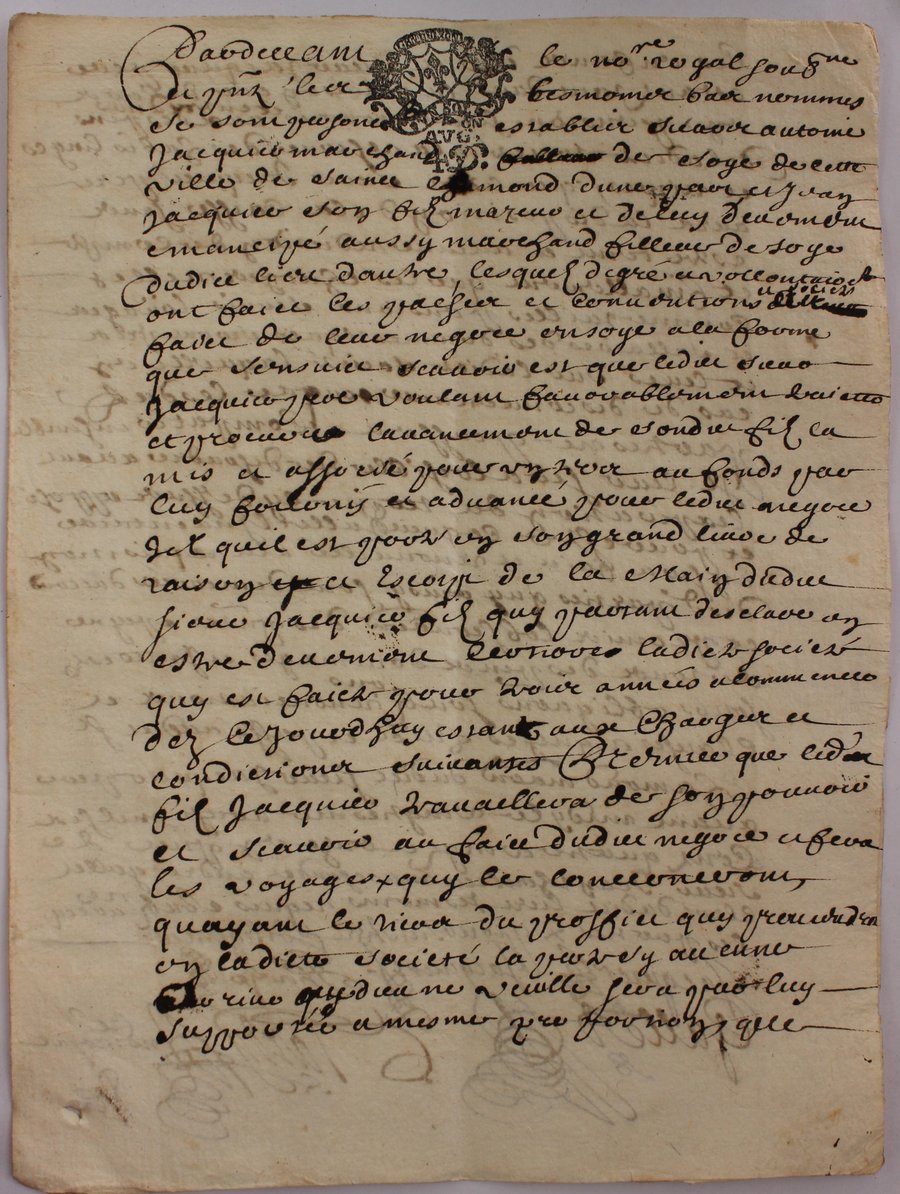 Pardevant le no.re royal soub.ne
et presents les tesmoings bas nommes
se sont personnellement establis scavoir antoine
Jacquier marchand de soye de cette
ville de sainct chamond d'une part et Jean
Jacquier son filz mazeur et de luy deuement
emancipé aussy marchand filleur de soye
dudict lieu d'autre, lesquelz de gré et vollontairem.t
ont faict les pachés et conventions et societé
faict de leur negoce en soye a la forme
que sensuict scavoir est que ledict sieur
Jacquier pere voulant favorablement traicter
et procurer lavancement de sondict filz la
mis et associé pour un tiers au fonds par
luy fournis et advancé pour ledict negoce
tel quil est porté en son grand livre de
raison et escript de la main dudict
sieur Jacquier filz quy partant desclare en
estre deuement ladicte societé
quy est faicte pour trois années a commencer
dez le jourdhuy estant aux charges et
condictions suivantes Premier que ledict
filz Jacquier travaillera de son pouvoir
et scavoir au faict dudict negoce et fera
les voyages quy le concerneront,
quayant le tiers du proffict quy proviendra
en ladicte societé la perte sy aucune
arrive que dieu ne veuille sera par luy
supportée a mesme proportion, que